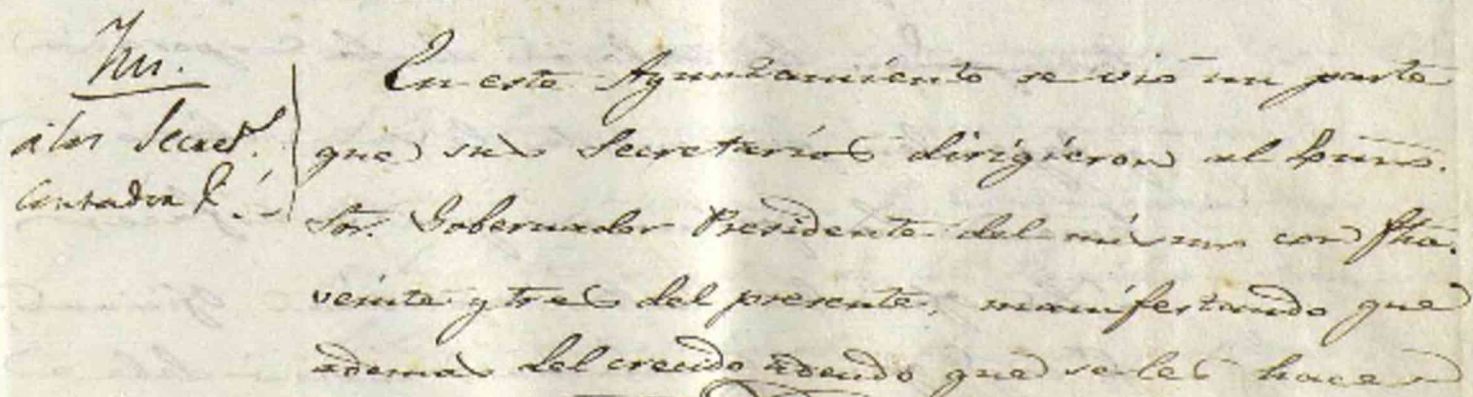 á los Secret.^s
Contador
En este Ayuntamiento se vió un parte
que sus Secretarios dirigieron al
Sor. Gobernador Presidente del mismo con fha.
veinte y tres del presente, manifestando que
ademas del crecido adeudo que se les hace